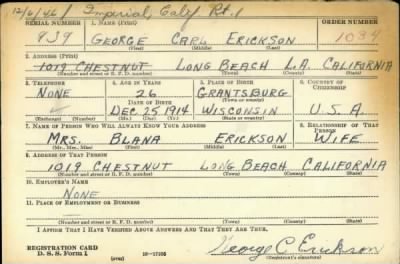 12/6/46 / Imperial, Calif. Rt. 1
SERIAL NUMBER 1. NAME (Print) ORDER NUMBER
939 GEORGE CARL ERICKSON 1034
(First) (Middle) (Last)
2. ADDRESS (Print)
1019 CHESTNUT LONG BEACH L.A. CALIFORNIA
(Number and street or R. F. D. number) (Town) (County) (State)
3. TELEPHONE 4. AGE IN YEARS 5. PLACE OF BIRTH 6. COUNTRY OF CITIZENSHIP
NONE 26 GRANTSBURG
DATE OF BIRTH (Town or county)
DEC. 25 1914 WISCONSIN U.S.A.
(Exchange) (Number) (Mo.) (Day) (Yr.) (State or country)
7. NAME OF PERSON WHO WILL ALWAYS KNOW YOUR ADDRESS 8. RELATIONSHIP OF THAT PERSON
MRS. BLANA ERICKSON WIFE
(Mr., Mrs., Miss) (First) (Middle) (Last)
9. ADDRESS OF THAT PERSON
1019 CHESTNUT LONG BEACH CALIFORNIA
(Number and street or R. F. D. number) (Town) (County) (State)
10. EMPLOYER'S NAME
NONE
11. PLACE OF EMPLOYMENT OR BUSINESS
(Number and street or R. F. D. number) (Town) (County) (State)
I AFFIRM THAT I HAVE VERIFIED ABOVE ANSWERS AND THAT THEY ARE TRUE.
REGISTRATION CARD
D. S. S. Form 1 (over) 16-17105
George C Erickson
(Registrant's signature)